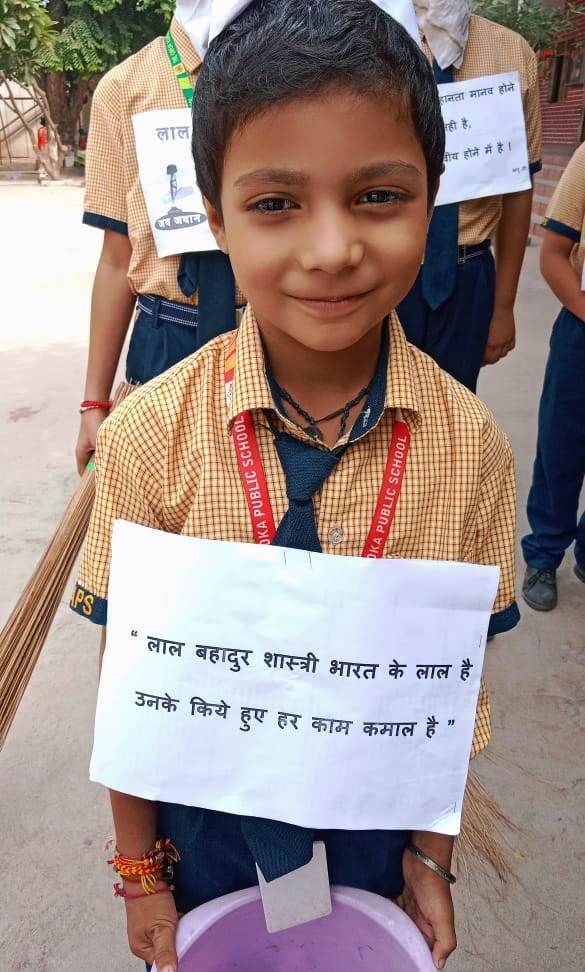 लाल
जय जवान
हानता मानव होने
ही है,
ीय होने में है !
OKA PUBLIC SCHOOL
OKA PUBLIC SCHOOL
APS
“ लाल बहादुर शास्त्री भारत के लाल है
उनके किये हुए हर काम कमाल है ”